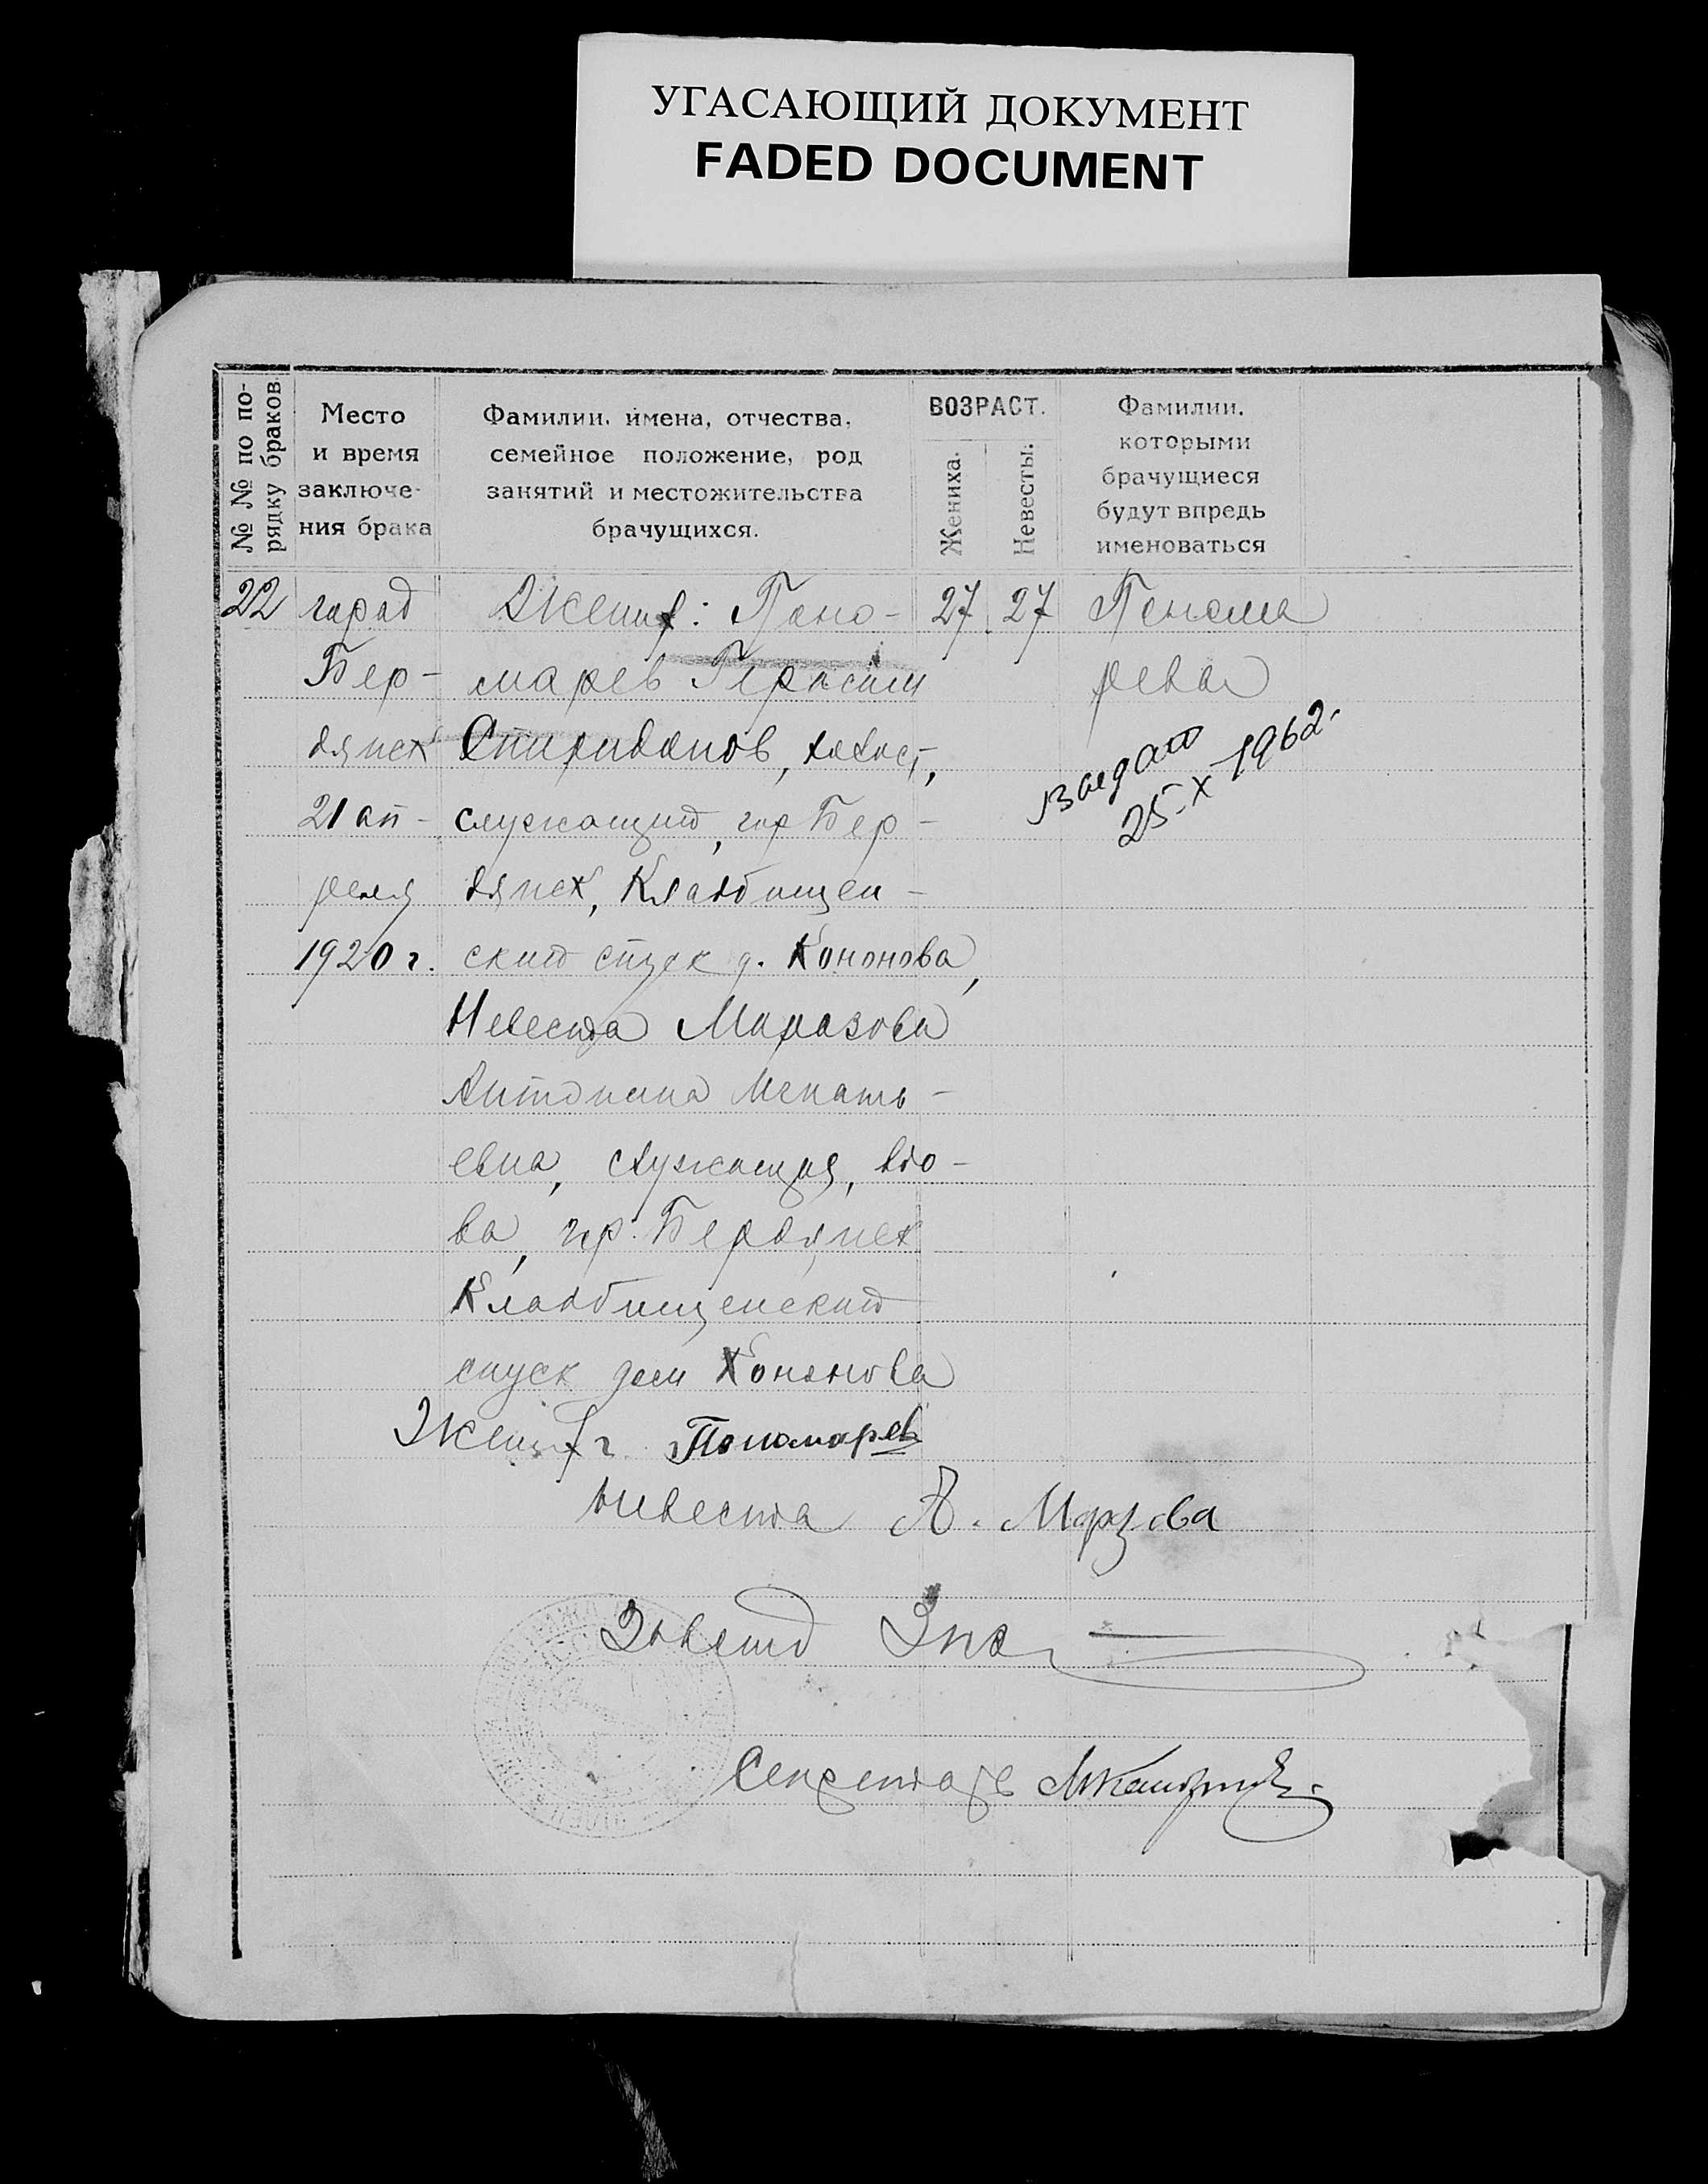 УГАСАЮЩИЙ ДОКУМЕНТ
FADED DOCUMENT
№ № по по-
рядку браков.
Место
и время
заключе-
ния брака
Фамилии, имена, отчества,
семейное положение, род
занятий и местожительства
брачущихся.
ВОЗРАСТ.
Жениха.
Невесты.
Фамилии,
которыми
брачущиеся
будут впредь
именоваться
22 город Жених: Поно- 27 27 Понома
Бер- марев Герасим рева
дянск Спиридонов, холост,
21 ап- служащий, гор Бер-
реля дянск, Кладбищен-
1920 г. ский спуск д. Кононова,
25-X 1962.
Невеста Маразова
Антонина Игнать-
евна, служащая, вдо-
ва, гор. Бердянск
Кладбищенский
спуск дом Кононова
Жених Г. Пономарев
Невеста А. Морзова
Секретарь